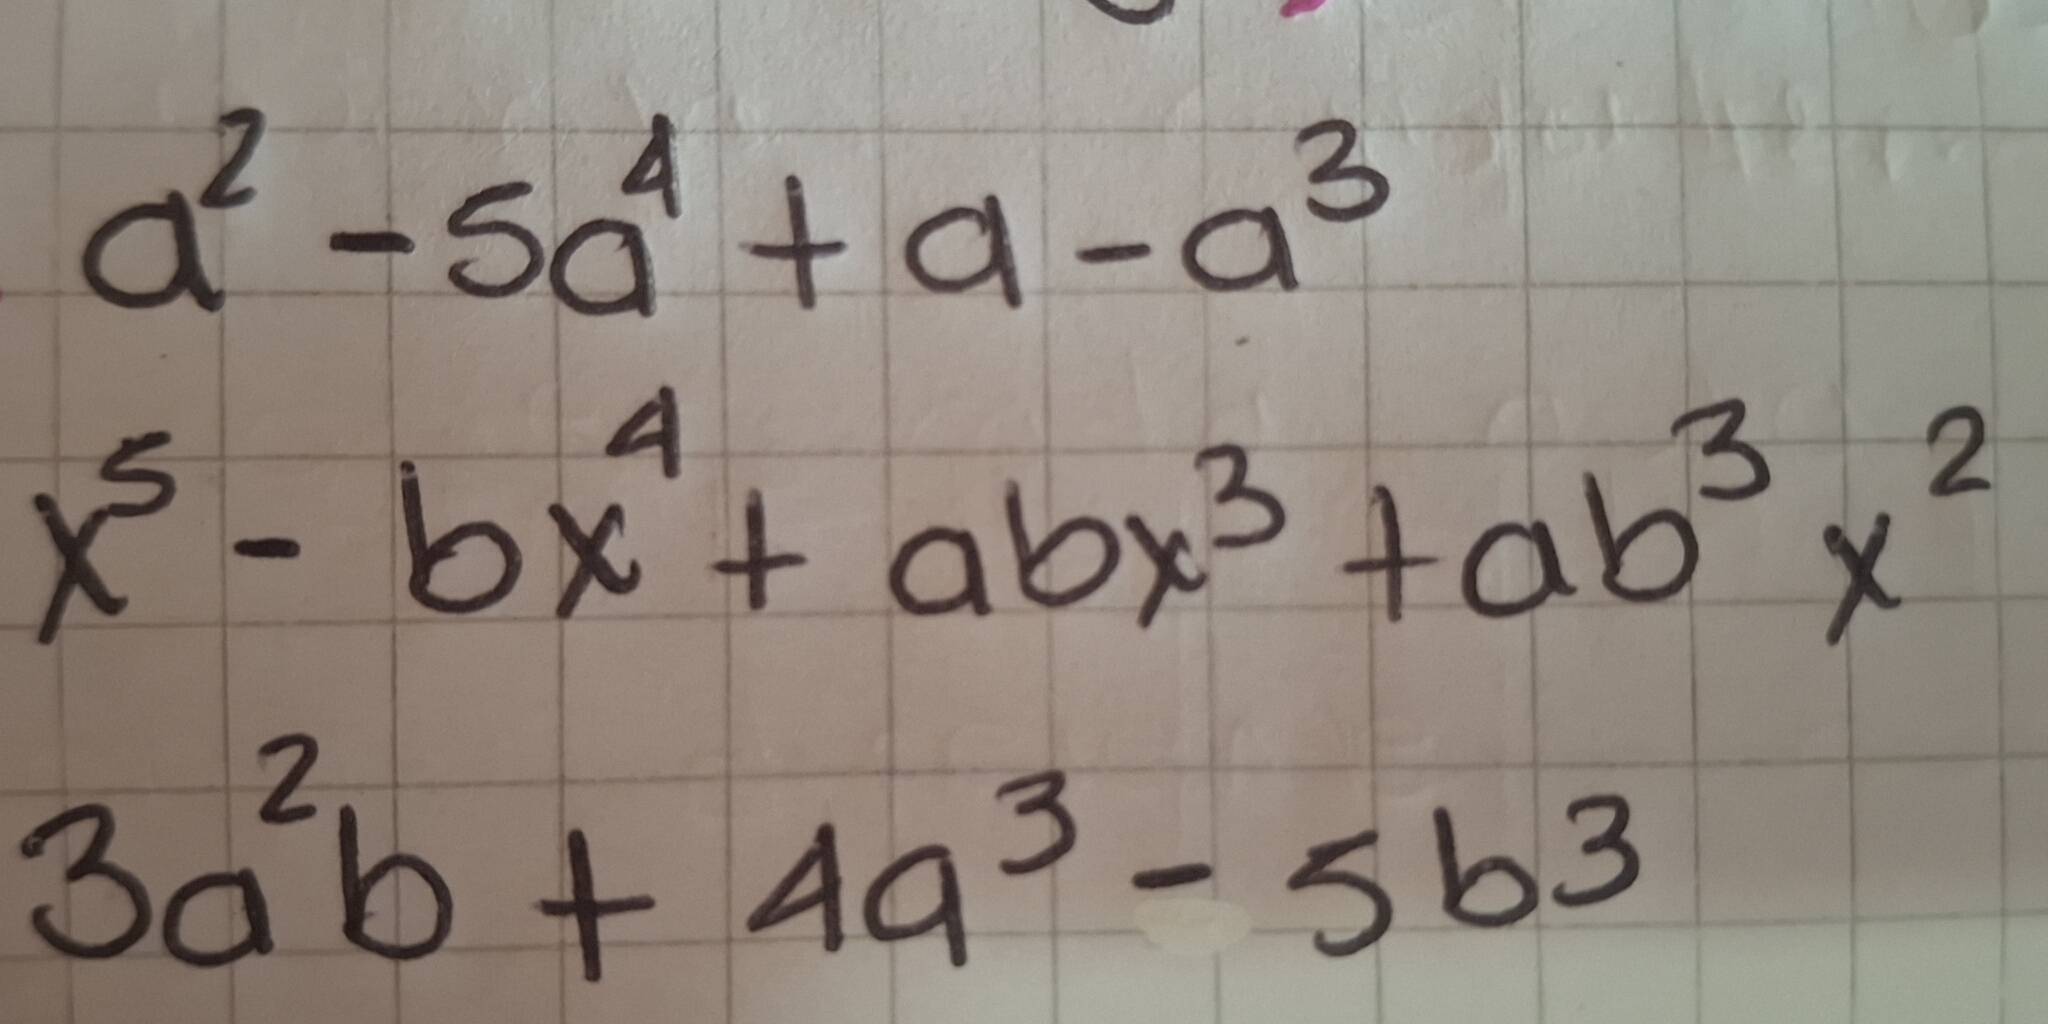 a² - 5a⁴ + a - a³
x⁵ - bx⁴ + abx³ + ab³x²
3a²b + 4a³ - 5b³